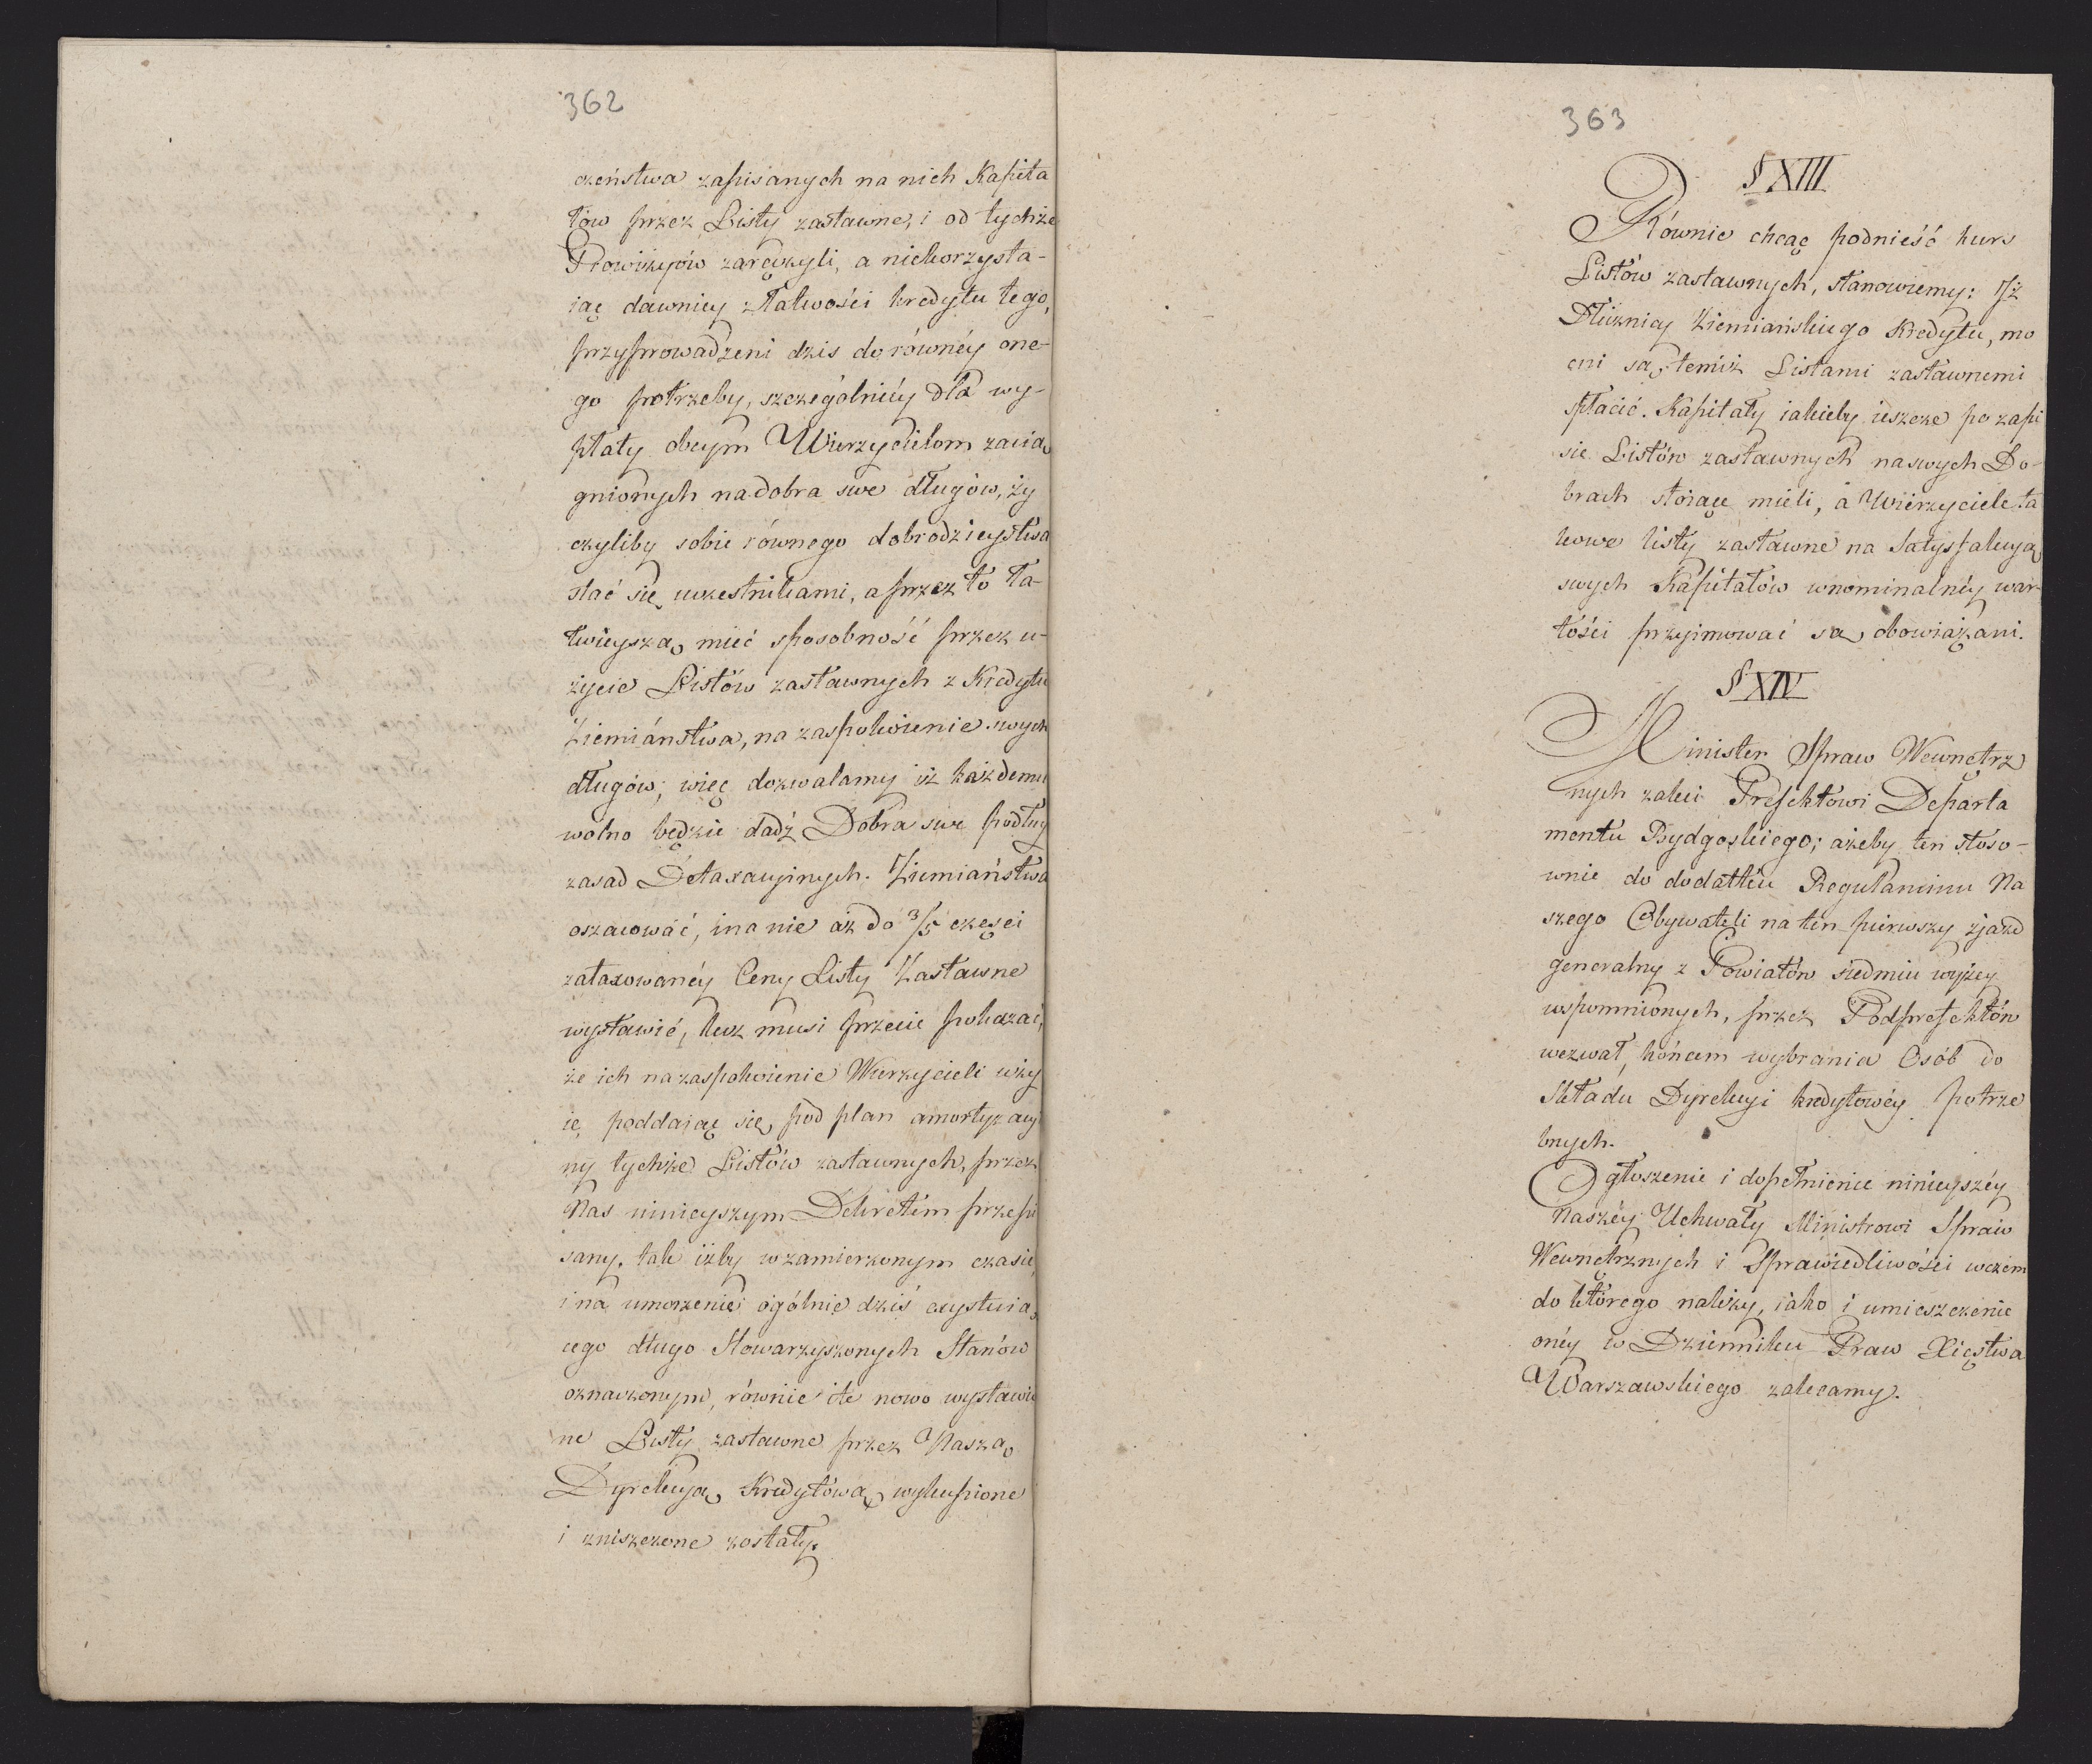 362
czeństwa zapisanych na nich Kapita
łów przez Listy zastawne, i od tychże
Prowizyów zaręczyli, a niekorzysta-
iąc dawniey z łatwości kredytu tego,
przyprowadzeni dzis do równéy one-
go potrzeby, szczególniéy dla wy-
płaty obcym Wierzycielom zacią
gnionych na dobra swe długów, ży
czyliby sobie równego dobrodzieystwa
stać się uczestnikami, a przez to ła-
twieyszą mieć sposobność przez u-
życie Listów zastawnych z Kredytu
Ziemiánstwa, na zaspokoienie swych
długów; więc dozwalamy iż każdemu
wolno będzie dadź Dobra swe podług
zasad Detaxacyinych. Ziemiaństwa
oszacować, i na nie áż do 3/5 części
zataxowanéy Ceny Listy Zastawne
wystawić, lecz musi przecie pokazać,
że ich na zaspokoienie Wierzycieli uży
ie, poddaiąc się pod plan amortyzacyi
ny tychże Listów zastawnych, przez
Nas ninieyszym Dekretem przepi
sany. tak iżby w zamierzonym czasie,
i na umorzenie ogólnie dziś exystuią
cego długo Stowarzyszonych Stanów
oznaczonym, równie ile nowo wystawio
ne Listy zastawne przez Naszą
Dyrekcyą Kredytówą wykupione
i zniszczone zostały.
363
§ XIII
Równie chcąc podnieść kurs
Listów zastawnych, stanowiemy: Iż
Dłużnicy Ziemiańskiego Kredytu, mo
cni są temiż Listami zastawnemi
spłacić. Kapitały iakieby ieszcze po zapi
sie Listów zastawnych na swych Do-
brach stoiące mieli, a Wierzyciele ta
kowe listy zastawne na Satysfakcyą
swych Kapitałów w nominalnéy war-
tości przyimować są obowiązani.
§ XIV
Minister Spraw Wewnętrz
nych zaleci Prefektowi Departa
mentu Bydgoskiego; ażeby ten stoso-
wnie do dodatku Regulaminu Na
szego Obywateli na ten pierwszy zjazd
generalny z Powiatów siedmiu wyżey
wspomnionych, przez Podprefektów
wezwał, końcem wybrania Osób do
Składu Dyrekcyi kredytowéy potrze
bnych.
Ogłoszenie i dopełnienie ninieyszéy
Naszéy Uchwały Ministrowi Spraw
Wewnętrznych i Sprawiedliwości w czem
do którego należy, iako i umieszczenie
onéy w Dzienniku Praw Xięstwa
Warszawskiego zalecamy.